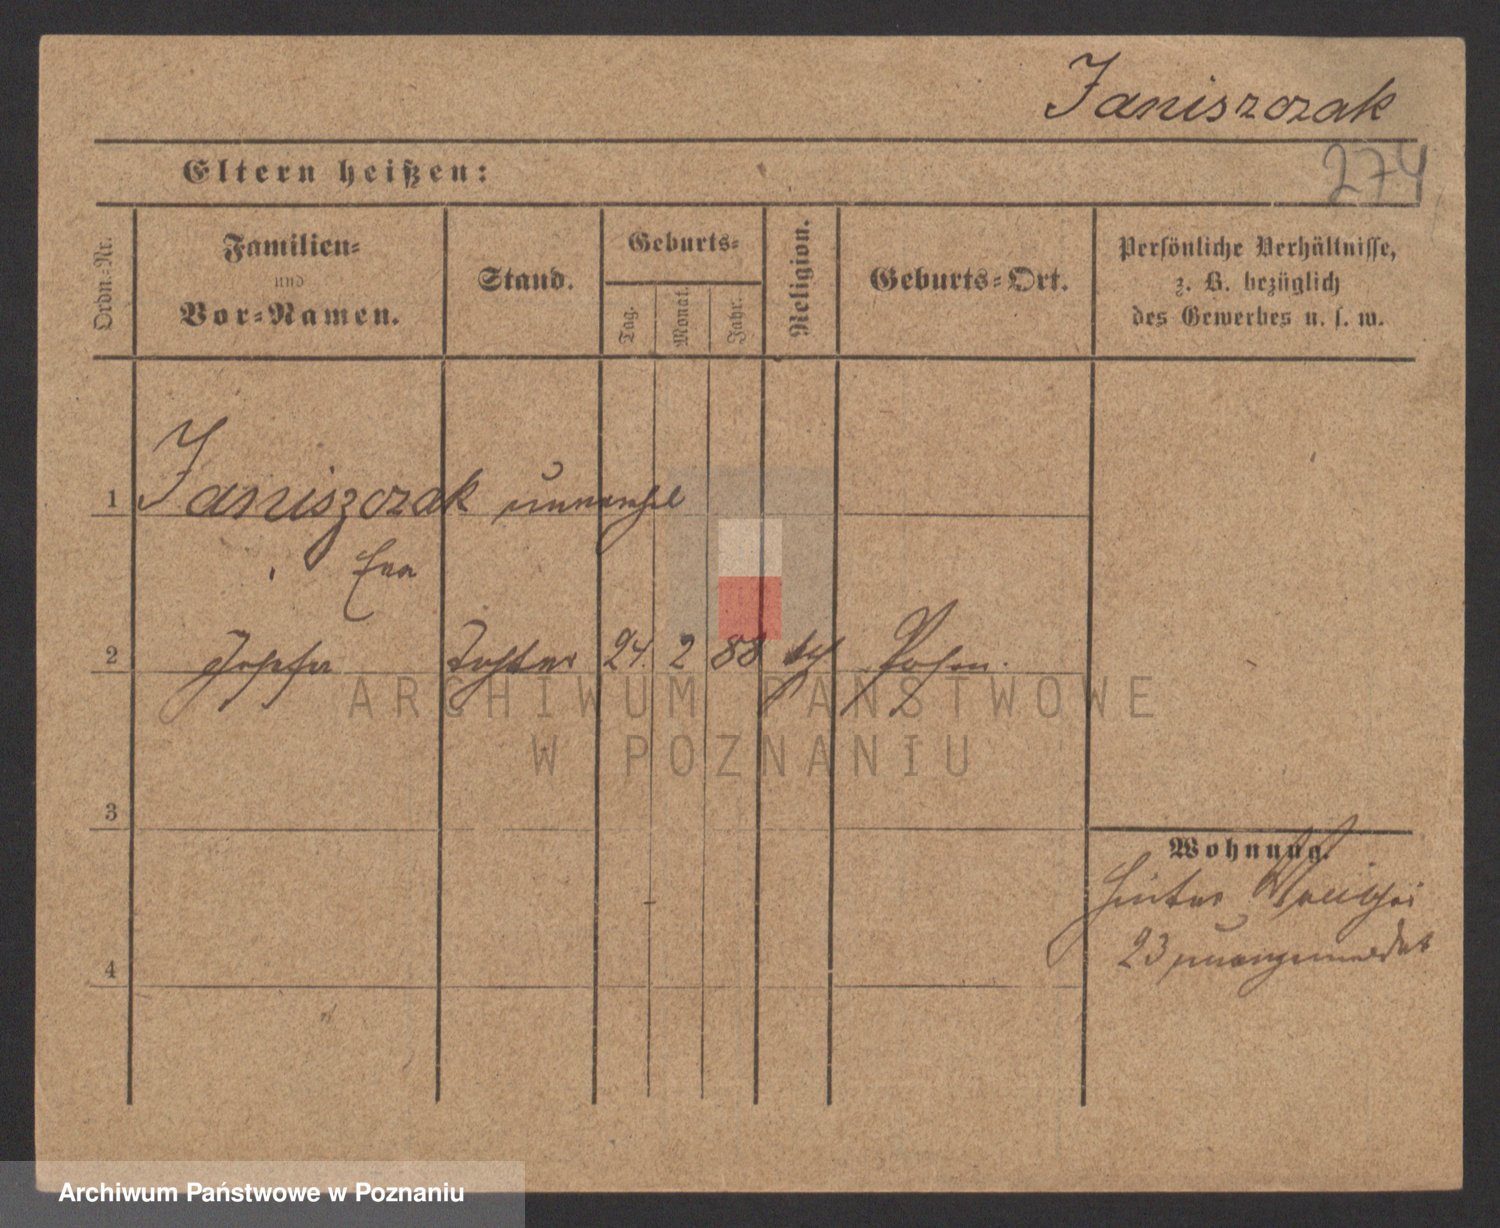 Janiszczak
274
Eltern heißen:
Ordn.-Nr.
Familien-
und
Vor-Namen.
Stand.
Geburts-
Tag.
Monat.
Jahr.
Religion.
Geburts-Ort.
Persönliche Verhältnisse,
z. B. bezüglich
des Gewerbes u. s. w.
1 Janiszczak unverehel
Eva
2 Josefa Tochter 24. 2 88 Posen.
3
4
Wohnung.
Hinter Wallischei
23 unangemeldet
ARCHIWUM PAŃSTWOWE
W POZNANIU
Archiwum Państwowe w Poznaniu